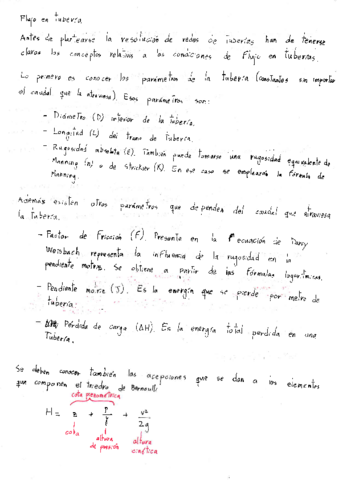 Flujo en tubería
Antes de plantearse la resolución de redes de tuberías han de tenerse
claros los conceptos relativos a las condiciones de Flujo en tuberías.
Lo primero es conocer los parámetros de la tubería (constantes sin importar
el caudal que la atraviesa). Esos parámetros son:
- Diámetro (D) interior de la tubería.
- Longitud (L) del tramo de tubería.
- Rugosidad absoluta (ε). También puede tomarse una rugosidad equivalente de
Manning (n) o de Strickler (K). En ese caso se empleará la Fórmula de
Manning.
Además existen otros parámetros que dependen del caudal que atraviesa
la tubería.
- Factor de Fricción (F). Presente en la ecuación de Darcy
Weisbach representa la influencia de la rugosidad en la
pendiente motriz. Se obtiene a partir de las Fórmulas logarítmicas.
- Pendiente motriz (J). Es la energía que se pierde por metro de
tubería.
- Pérdida de carga (ΔH). Es la energía total perdida en una
Tubería.
Se deben conocer también las acepciones que se dan a los elementos
que componen el triedro de Bernoulli
cota piezométrica
H = z + P/γ + v²/2g
cota altura de presión altura cinética